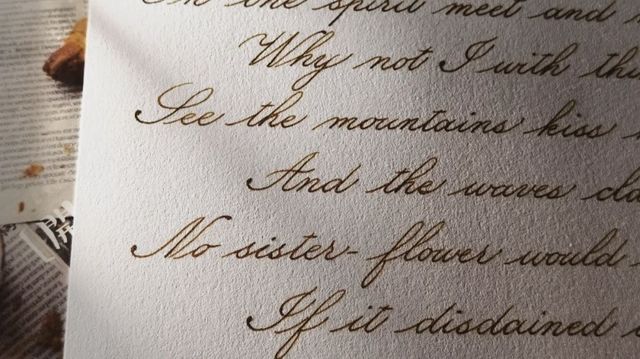 In one spirit meet and
Why not I with
See the mountains kiss
And the waves
No sister-flower would
If it disdained